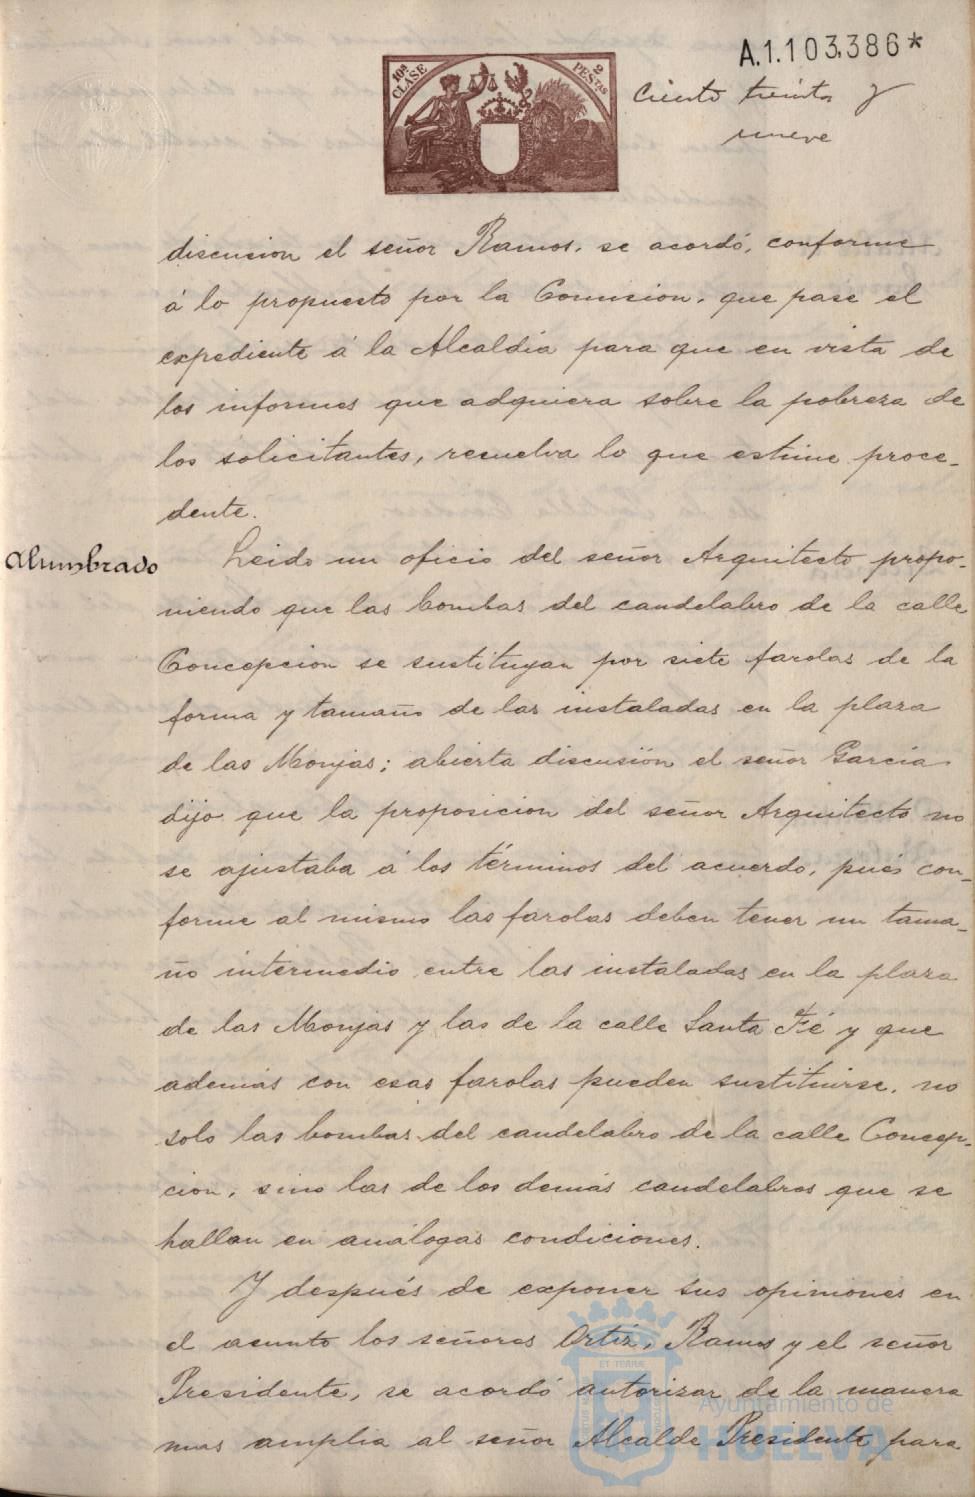 A.1.103.386*
10ª CLASE
2 PESTAS
Ciento treinta y
nueve
discusion el señor Ramos, se acordó, conforme
á lo propuesto por la Comision, que pase el
expediente á la Alcaldia para que en vista de
los informes que adquiera sobre la pobreza de
los solicitantes, resuelva lo que estime proce-
dente.
Alumbrado
Leido un oficio del señor Arquitecto propo-
niendo que las bombas del candelabro de la calle
Concepcion se sustituyan por siete farolas de la
forma y tamaño de las instaladas en la plaza
de las Monjas; abierta discusión el señor García
dijo que la proposicion del señor Arquitecto no
se ajustaba á los términos del acuerdo, pues con-
forme al mismo las farolas deben tener un tama-
ño intermedio entre las instaladas en la plaza
de las Monjas y las de la calle Santa Fé y que
además con esas farolas pueden sustituirse, no
solo las bombas del candelabro de la calle Concep-
cion, sino las de los demás candelabros que se
hallan en análogas condiciones.
Y después de exponer sus opiniones en
el asunto los señores Ortiz, Ramos y el señor
Presidente, se acordó autorizar de la manera
mas amplia al señor Alcalde Presidente para
Ayuntamiento de
HUELVA